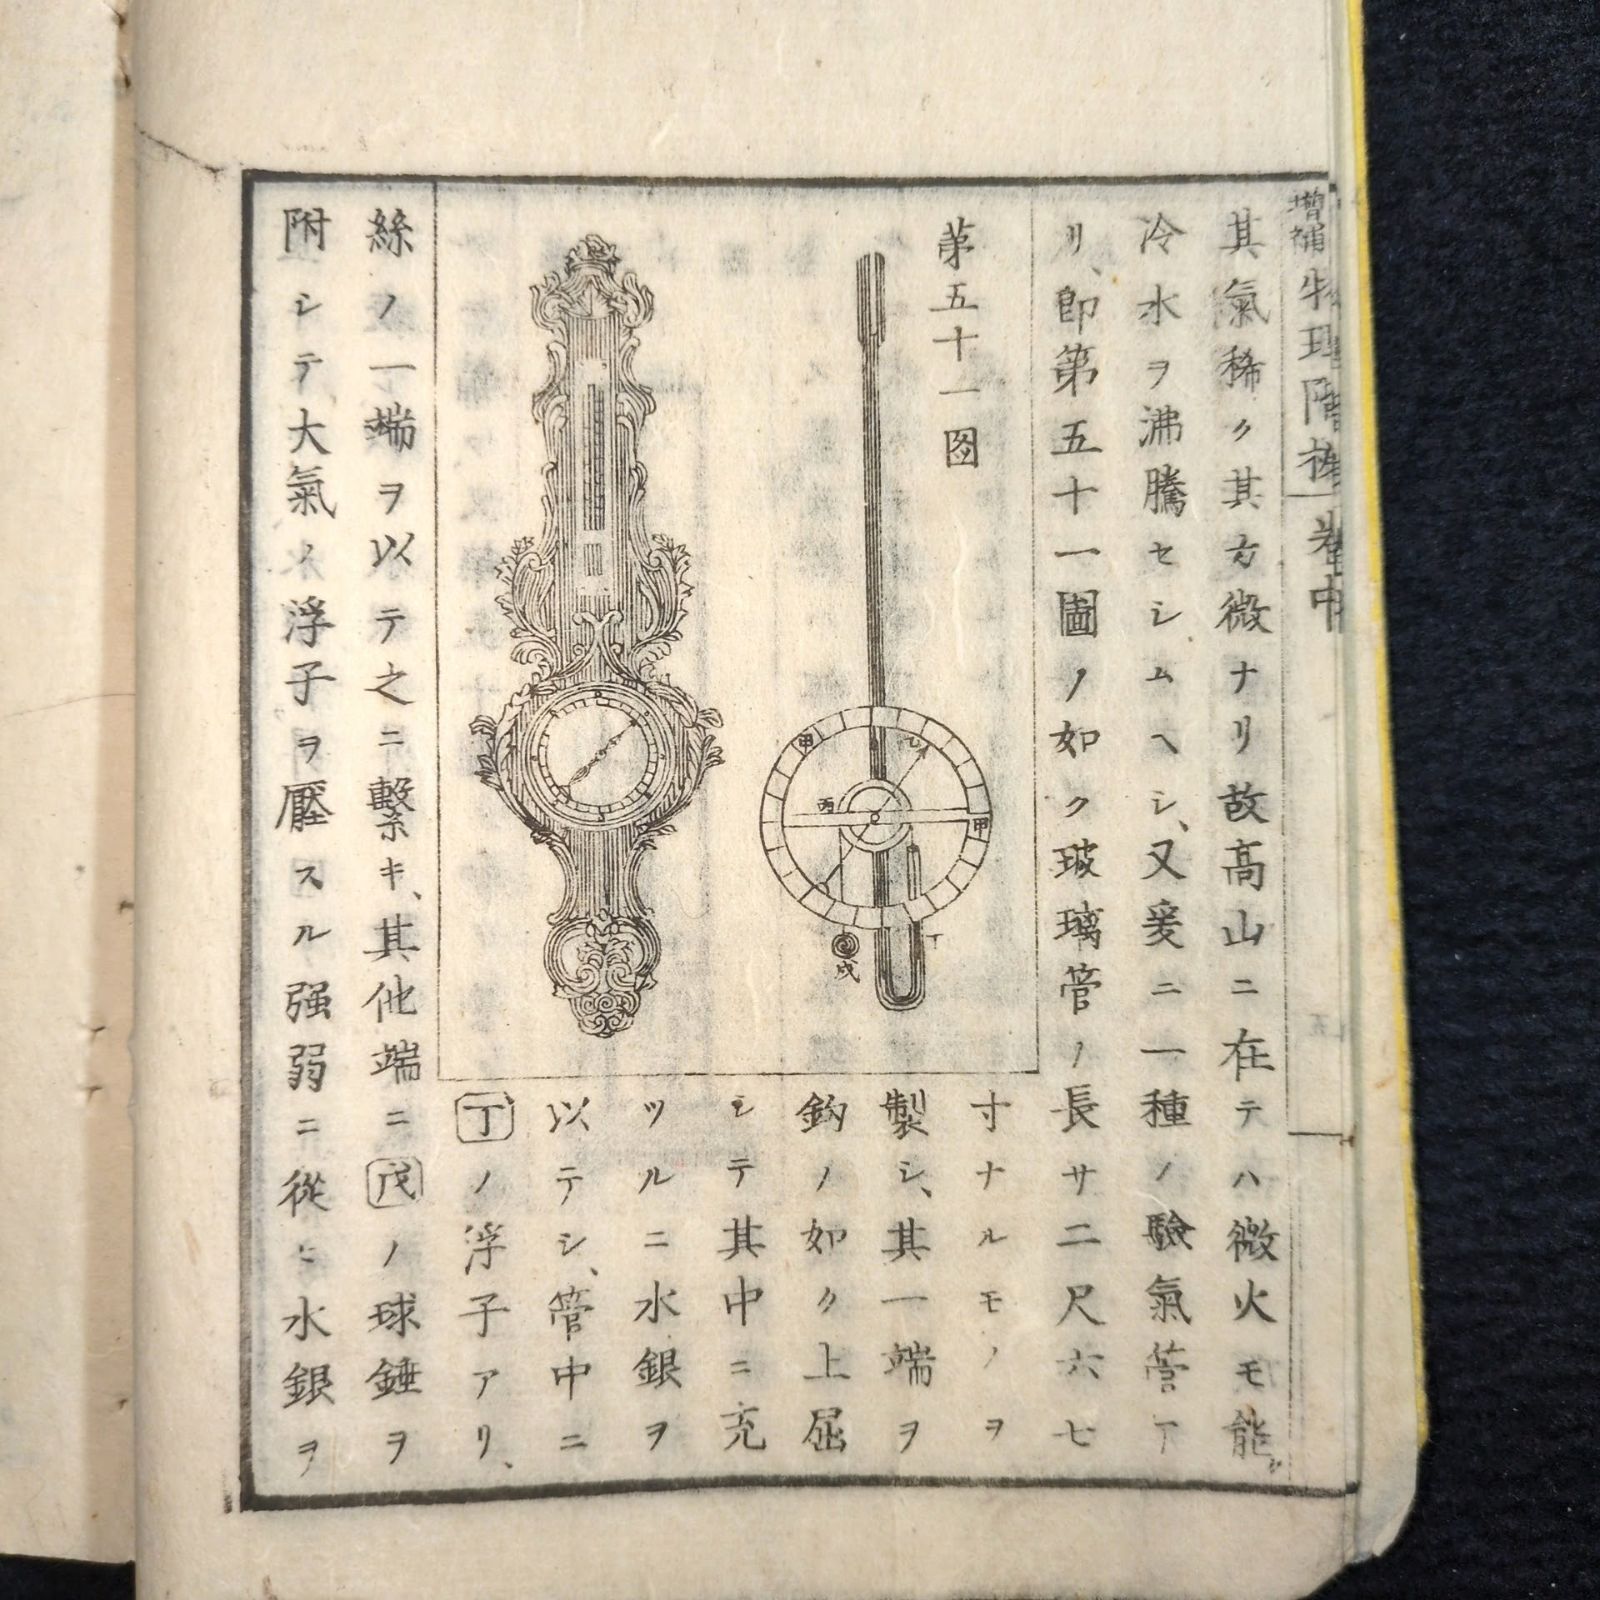 增補物理階梯 卷中
其氣稀ク其力微ナリ故高山ニ在テハ微火モ能ク
冷水ヲ沸騰セシムヘシ、又爰ニ一種ノ驗氣管ア
リ、即第五十一圖ノ如ク玻璃管ノ長サ二尺六七
第五十一图
甲
乙
丙
甲
丁
戊
寸ナルモノヲ
製シ、其一端ヲ
鈎ノ如ク上屈
シテ其中ニ充
ツルニ水銀ヲ
以テシ、管中ニ
丁ノ浮子アリ、
絲ノ一端ヲ以テ之ニ繫キ、其他端ニ戊ノ球錘ヲ
附シテ大氣ノ浮子ヲ壓スル强弱ニ從ヒ水銀ヲ